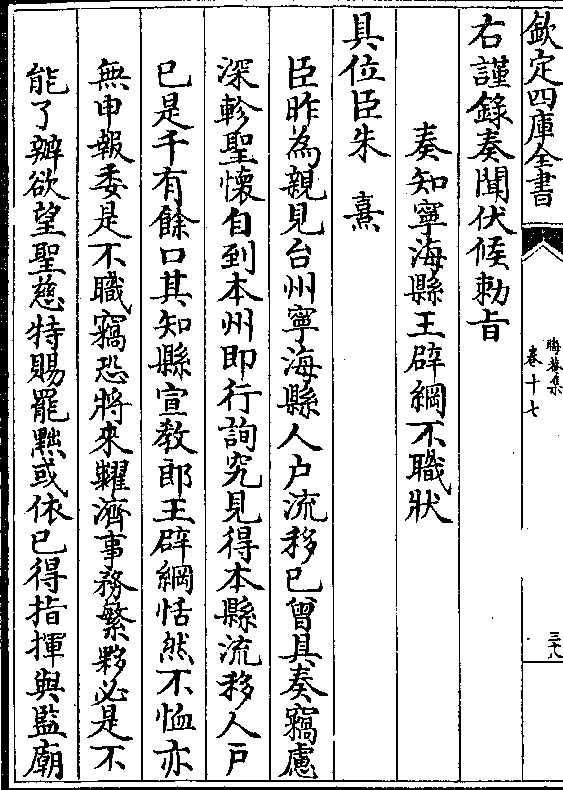 欽定四庫全書
晦菴集
卷十七
三十八
右謹錄奏聞伏候勅旨
奏知寧海縣王辟綱不職狀
具位臣朱熹
臣昨為親見台州寧海縣人户流移已曾具奏竊慮
深軫聖懷自到本州即行詢究見得本縣流移人戸
已是千有餘口其知縣宣教郎王辟綱恬然不恤亦
無申報委是不職竊恐將來糶濟事務繁夥必是不
能了辦欲望聖慈特賜罷黜或依已得指揮與監廟